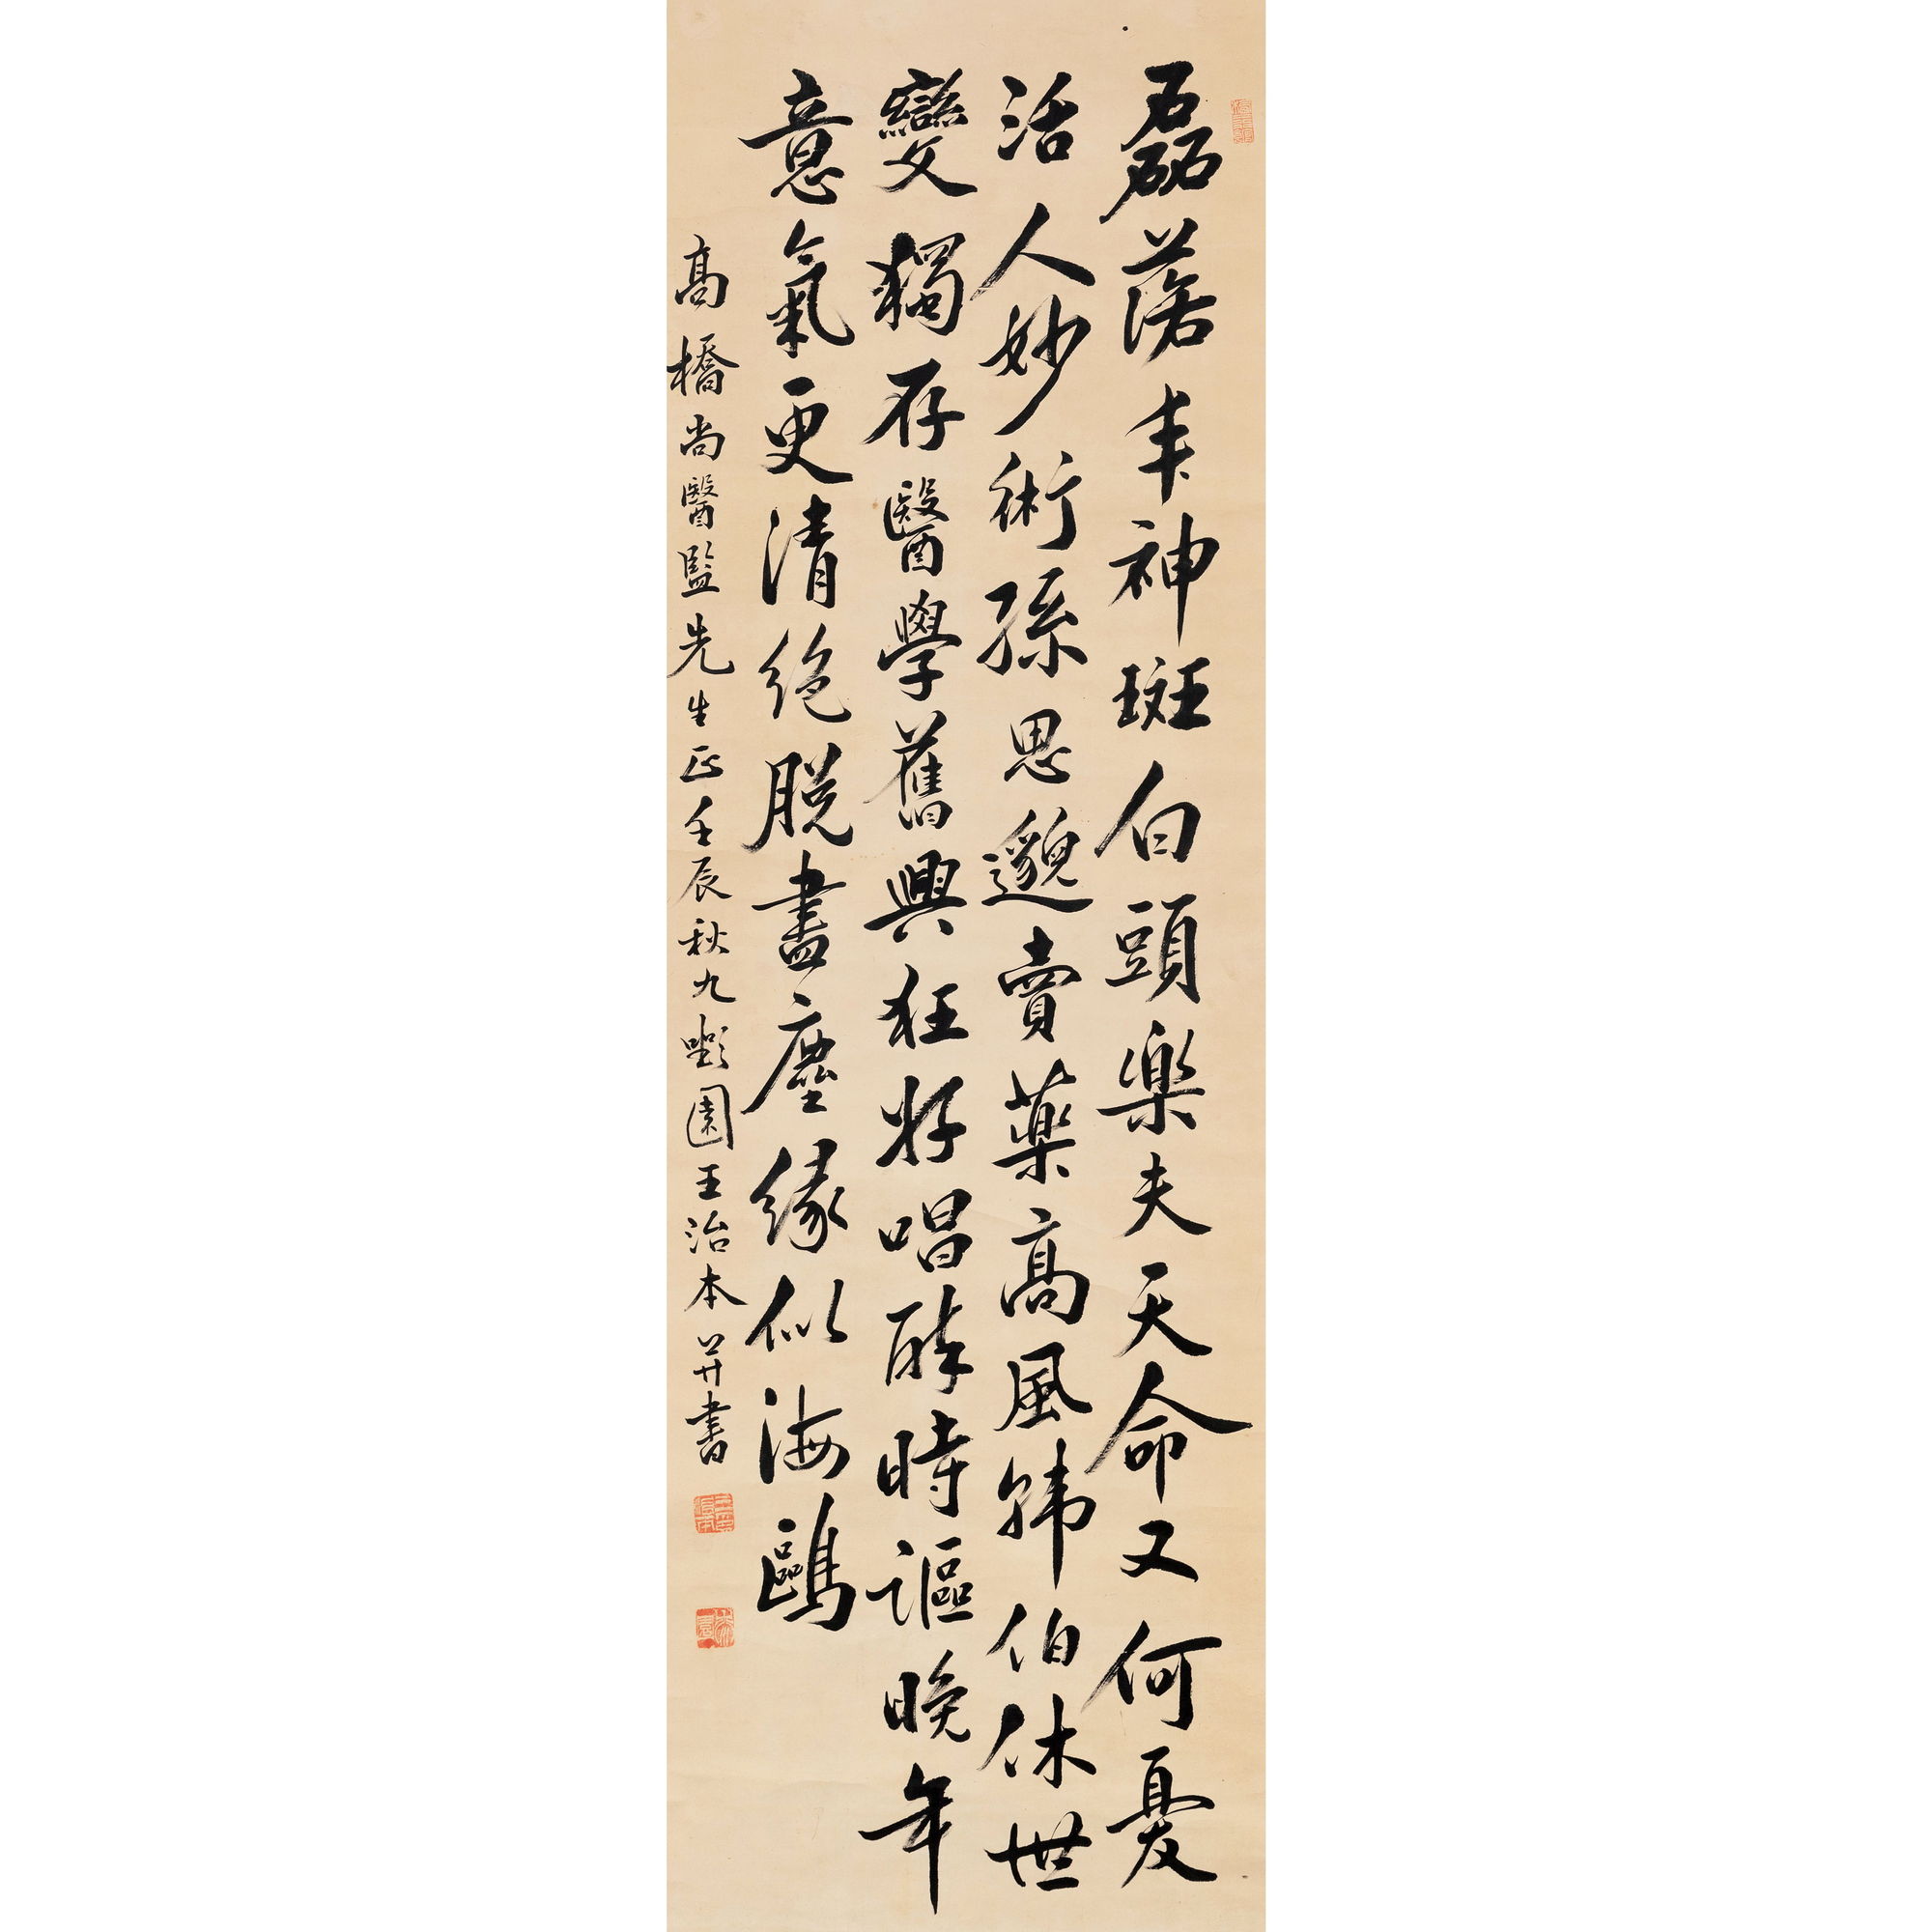 磊落丰神斑白頭樂夫天命又何憂
活人妙術孫思邈賣藥高風韓伯休世
變獨存醫學舊興狂好唱醉時謳晚年
意氣更清絕脫盡塵緣似海鷗
高橋尚醫監先生正壬辰秋九 園王治本并書